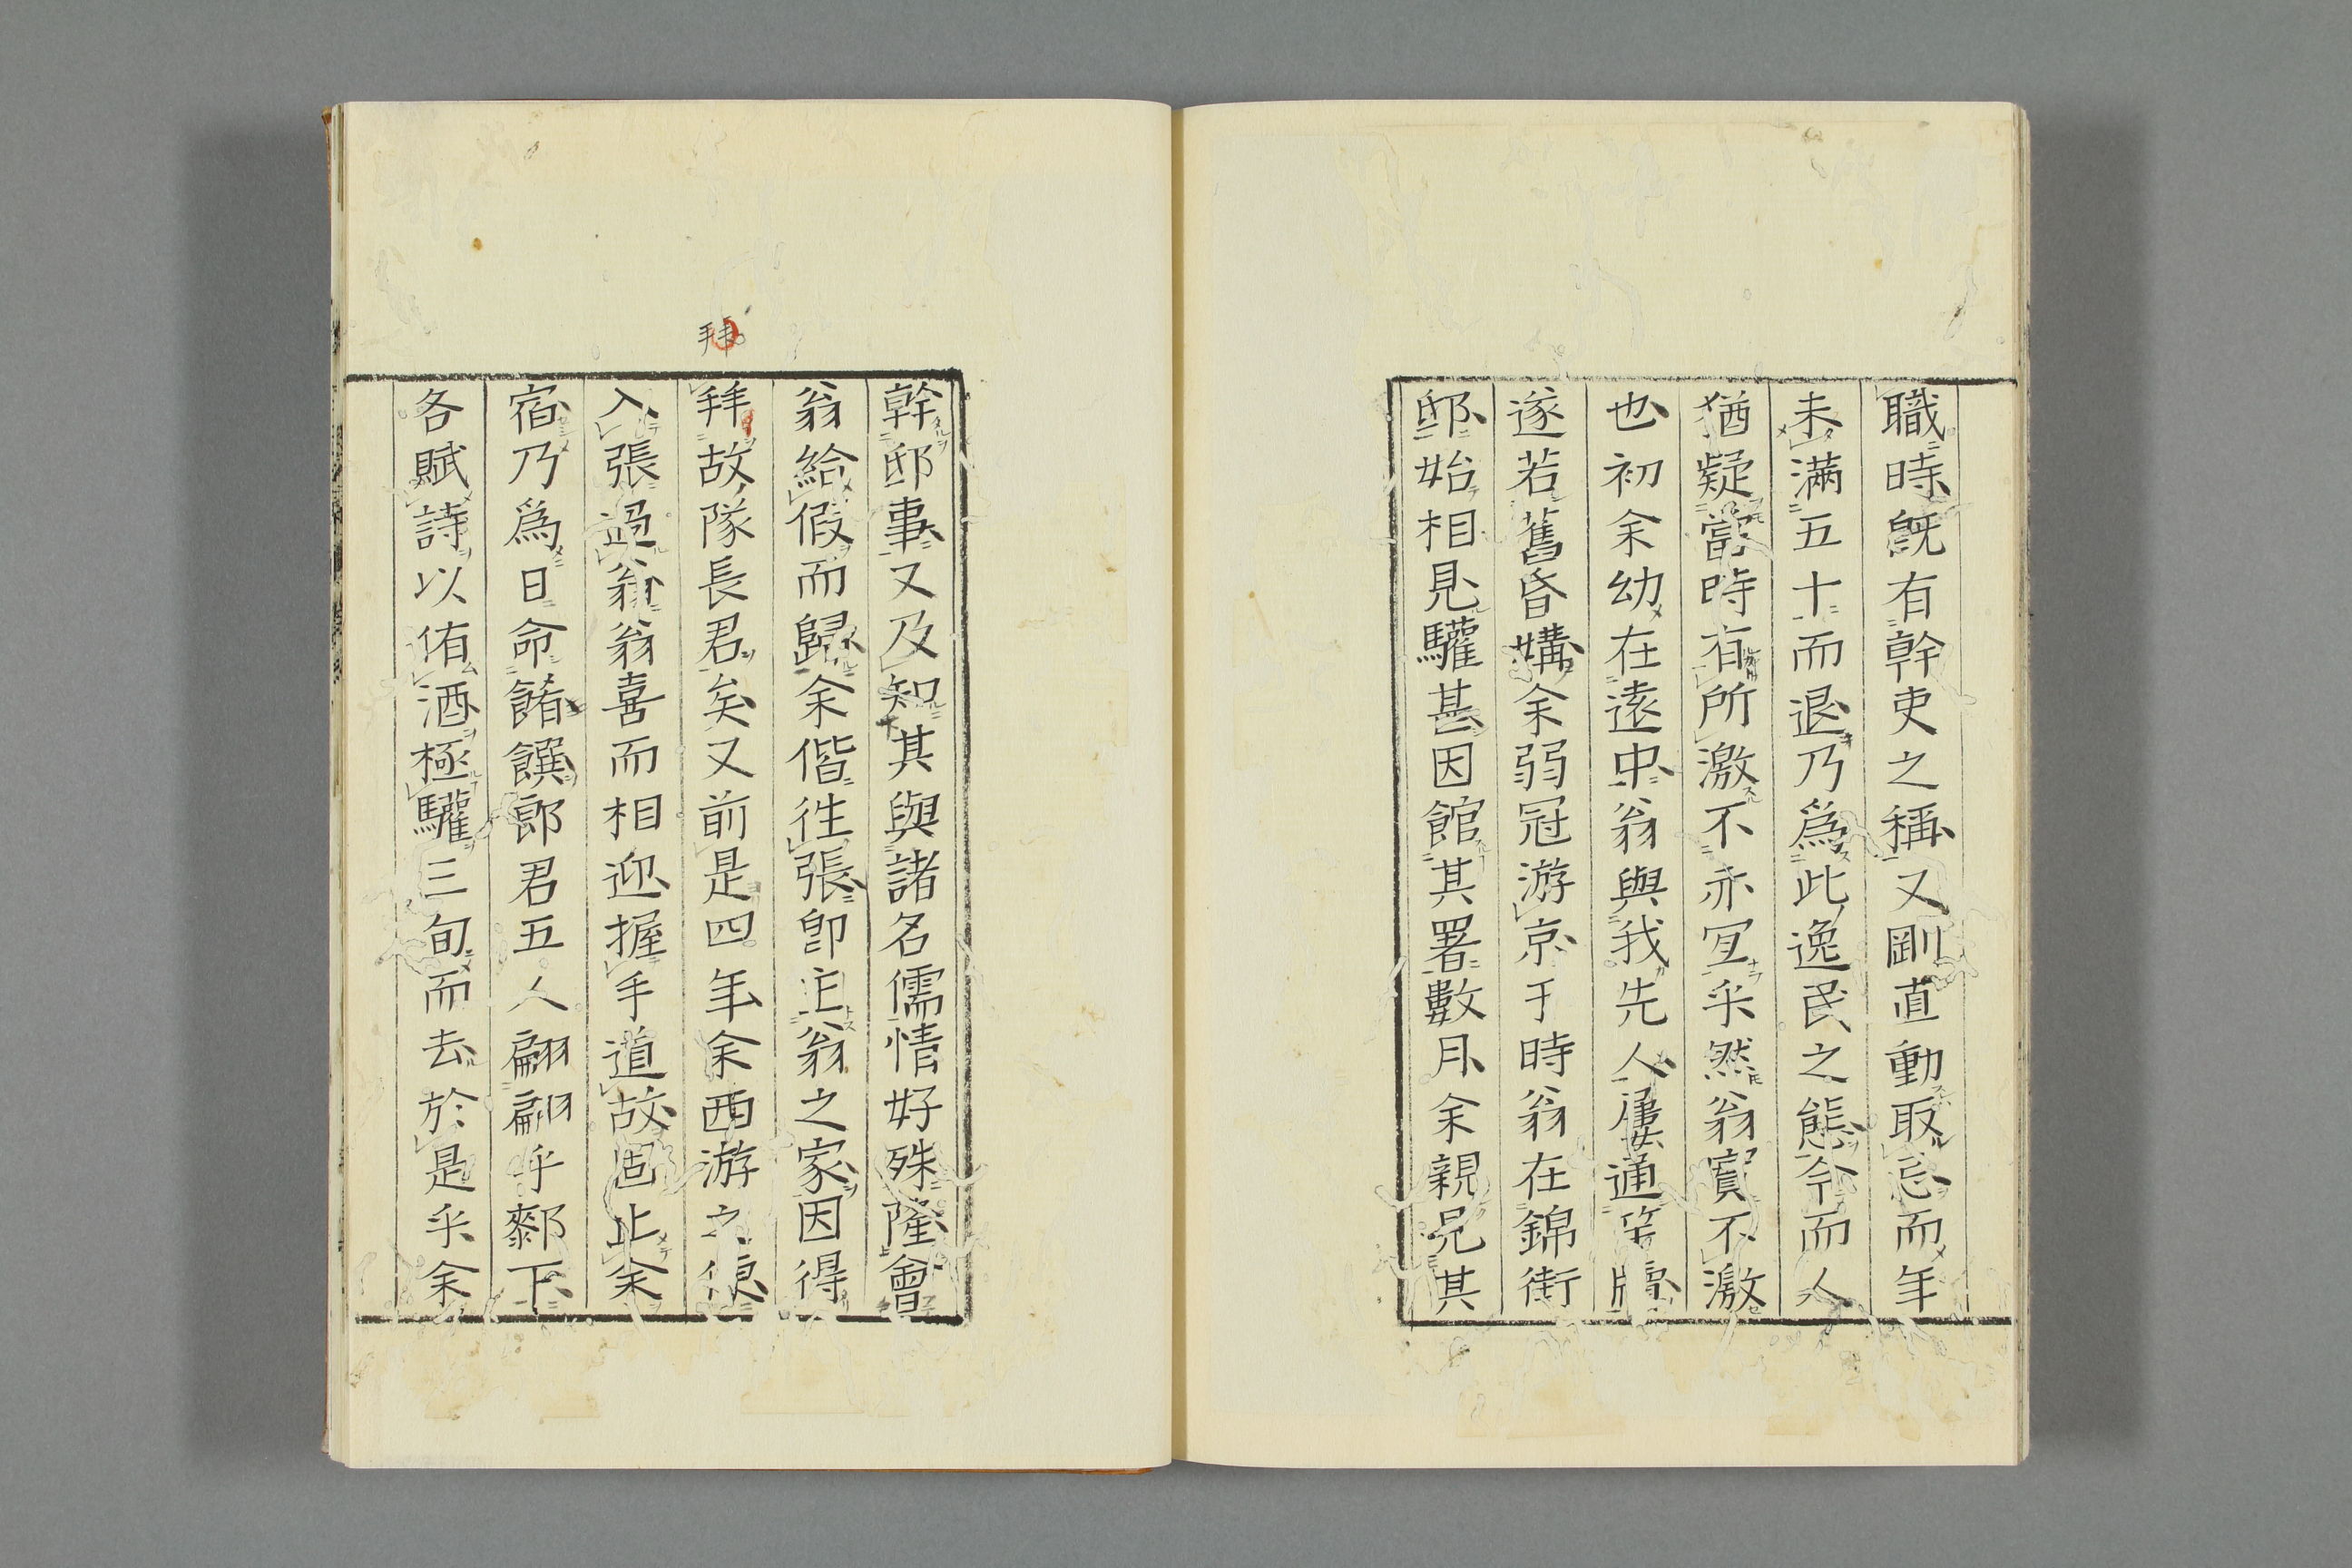 職時既有幹吏之稱又剛直動取忌而年
未滿五十而退乃爲此逸民之態令而人
猶疑當時有所激不亦宜乎然翁實不激
也初余幼在遠中翁與我先人屢通牋牘
遂若舊昏媾余弱冠游京于時翁在錦街
邸始相見驩甚因館其署數月余親兄其
幹邸事又及知其與諸名儒情好殊隆會
翁給假而歸余偕徃張卽主翁之家因得
拜故隊長君矣又前是四年余西游之便
入張過翁翁喜而相迎握手道故固止余
宿乃爲日命餚饌郎君五人翩翩乎鄴下
各賦詩以侑酒極驩三旬而去於是乎余
拜